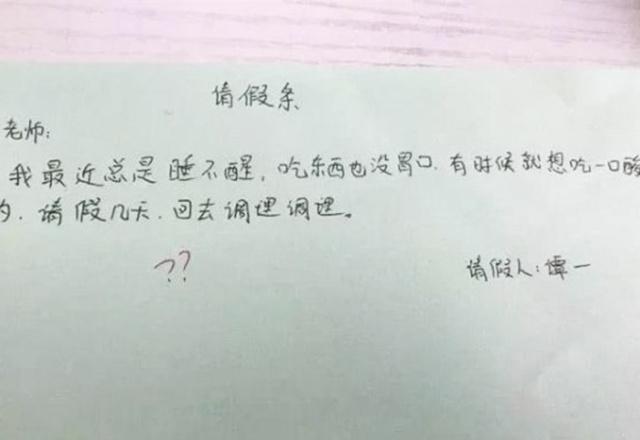 请假条
老师:
我最近总是睡不醒,吃东西也没胃口.有时候就想吃一口酸
的.请假几天.回去调理调理。
??
请假人:谭一